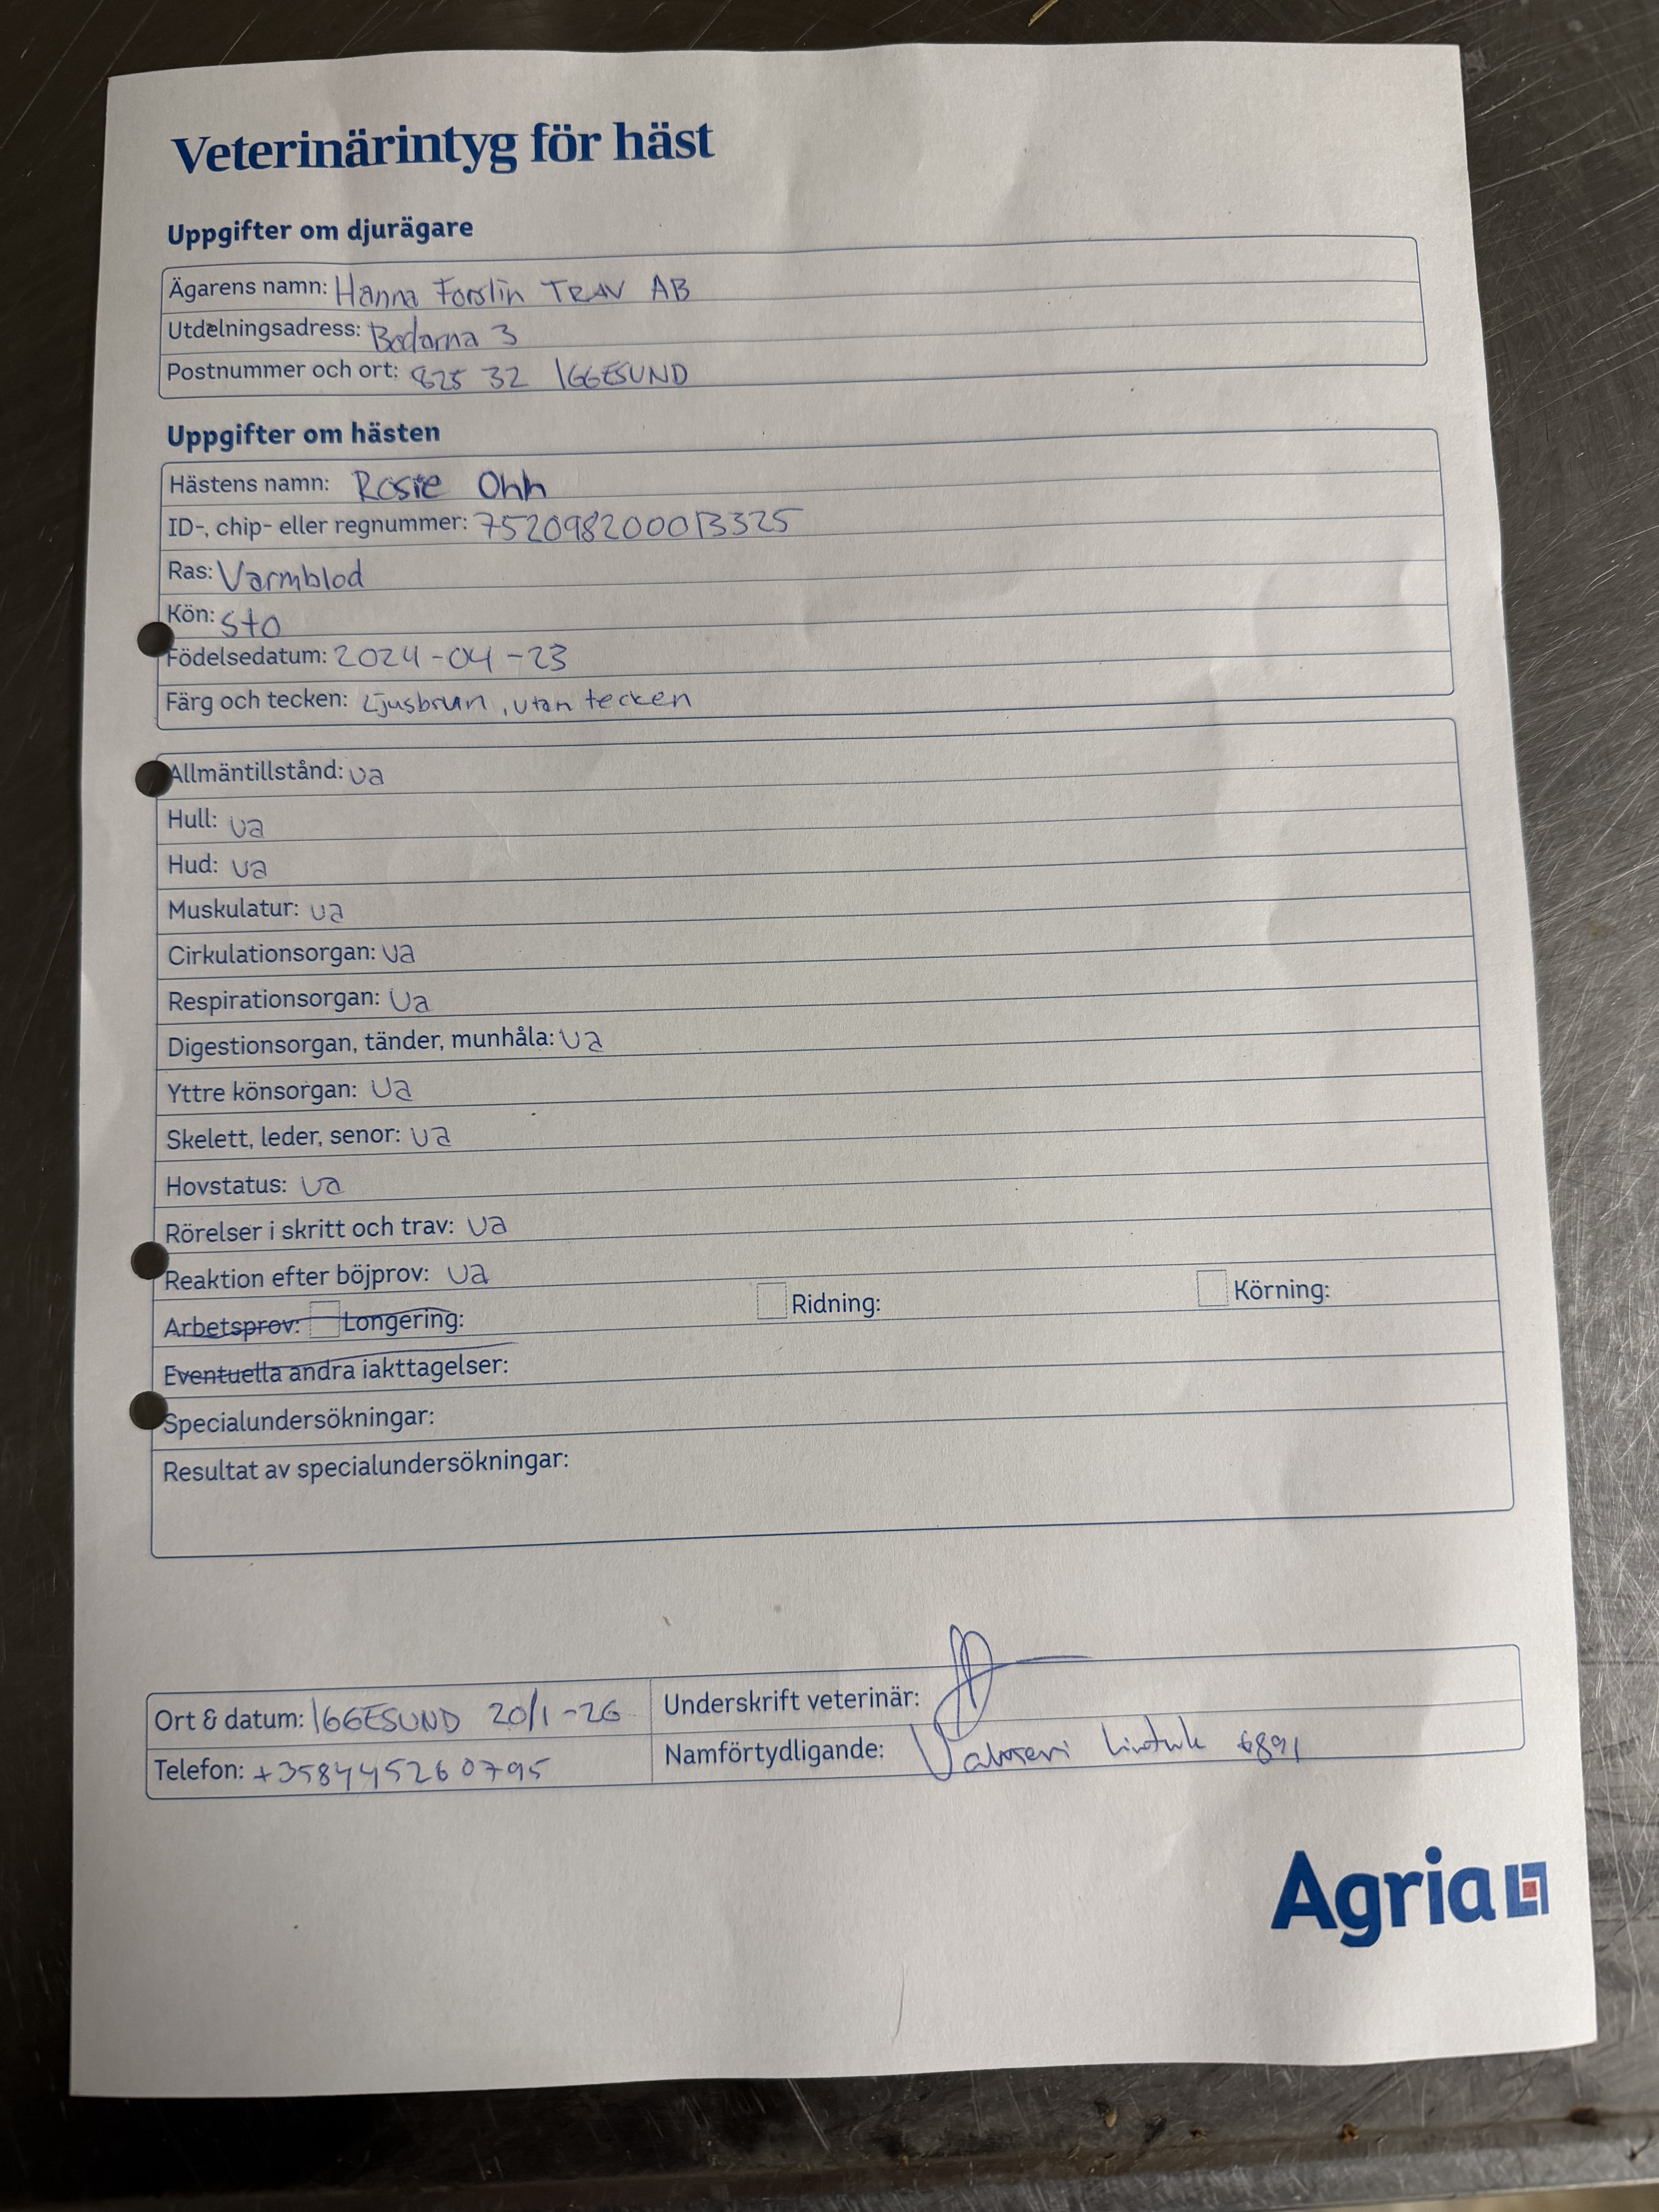 Veterinärintyg för häst
Uppgifter om djurägare
Ägarens namn: Hanna Forslin TRAV AB
Utdelningsadress: Bodarna 3
Postnummer och ort: 825 32 IGGESUND
Uppgifter om hästen
Hästens namn: Rosie Ohh
ID-, chip- eller regnummer: 752098200013325
Ras: Varmblod
Kön: Sto
Födelsedatum: 2024-04-23
Färg och tecken: Ljusbrun, utan tecken
Allmäntillstånd: ua
Hull: ua
Hud: ua
Muskulatur: ua
Cirkulationsorgan: ua
Respirationsorgan: Ua
Digestionsorgan, tänder, munhåla: ua
Yttre könsorgan: Ua
Skelett, leder, senor: ua
Hovstatus: ua
Rörelser i skritt och trav: ua
Reaktion efter böjprov: ua
Arbetsprov: Longering: Ridning: Körning:
Eventuella andra iakttagelser:
Specialundersökningar:
Resultat av specialundersökningar:
Ort & datum: IGGESUND 20/1-26 Underskrift veterinär:
Telefon: +358445260795 Namförtydligande: 6891
Agria